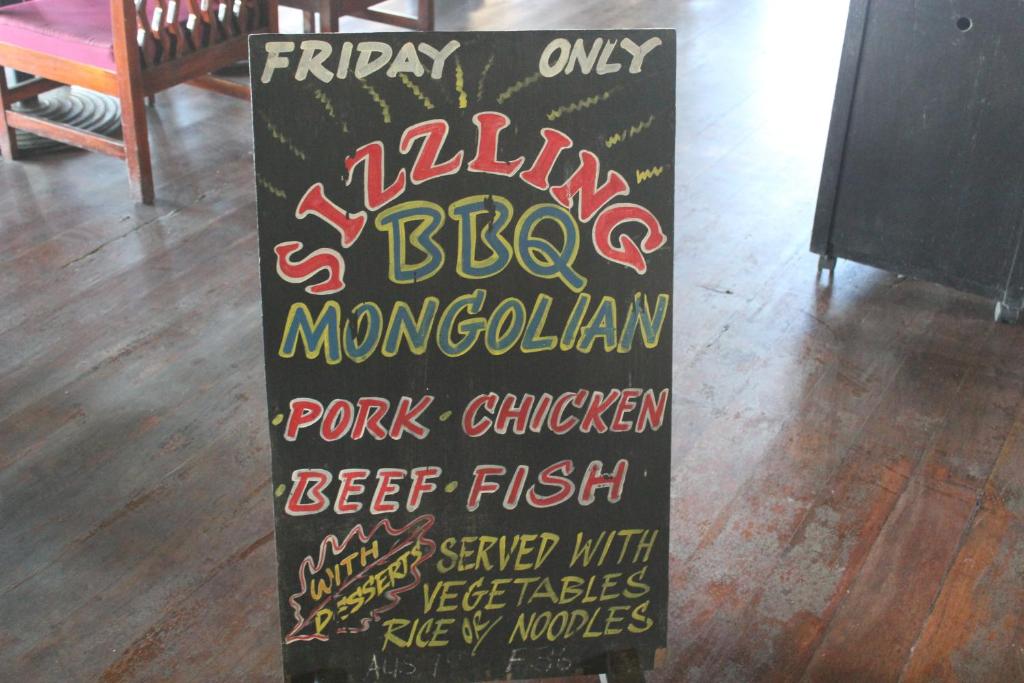 FRIDAY ONLY
SIZZLING
BBQ
MONGOLIAN
· PORK · CHICKEN
· BEEF · FISH
WITH
DESSERTS
SERVED WITH
VEGETABLES
RICE or NOODLES